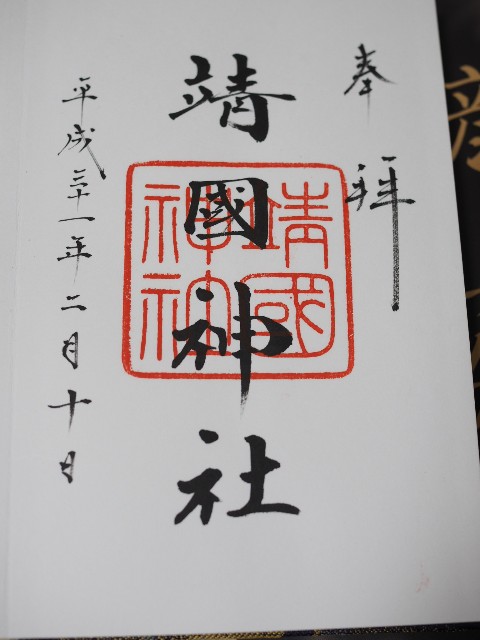 奉拝
靖國神社
靖國神社
平成三十一年二月十日